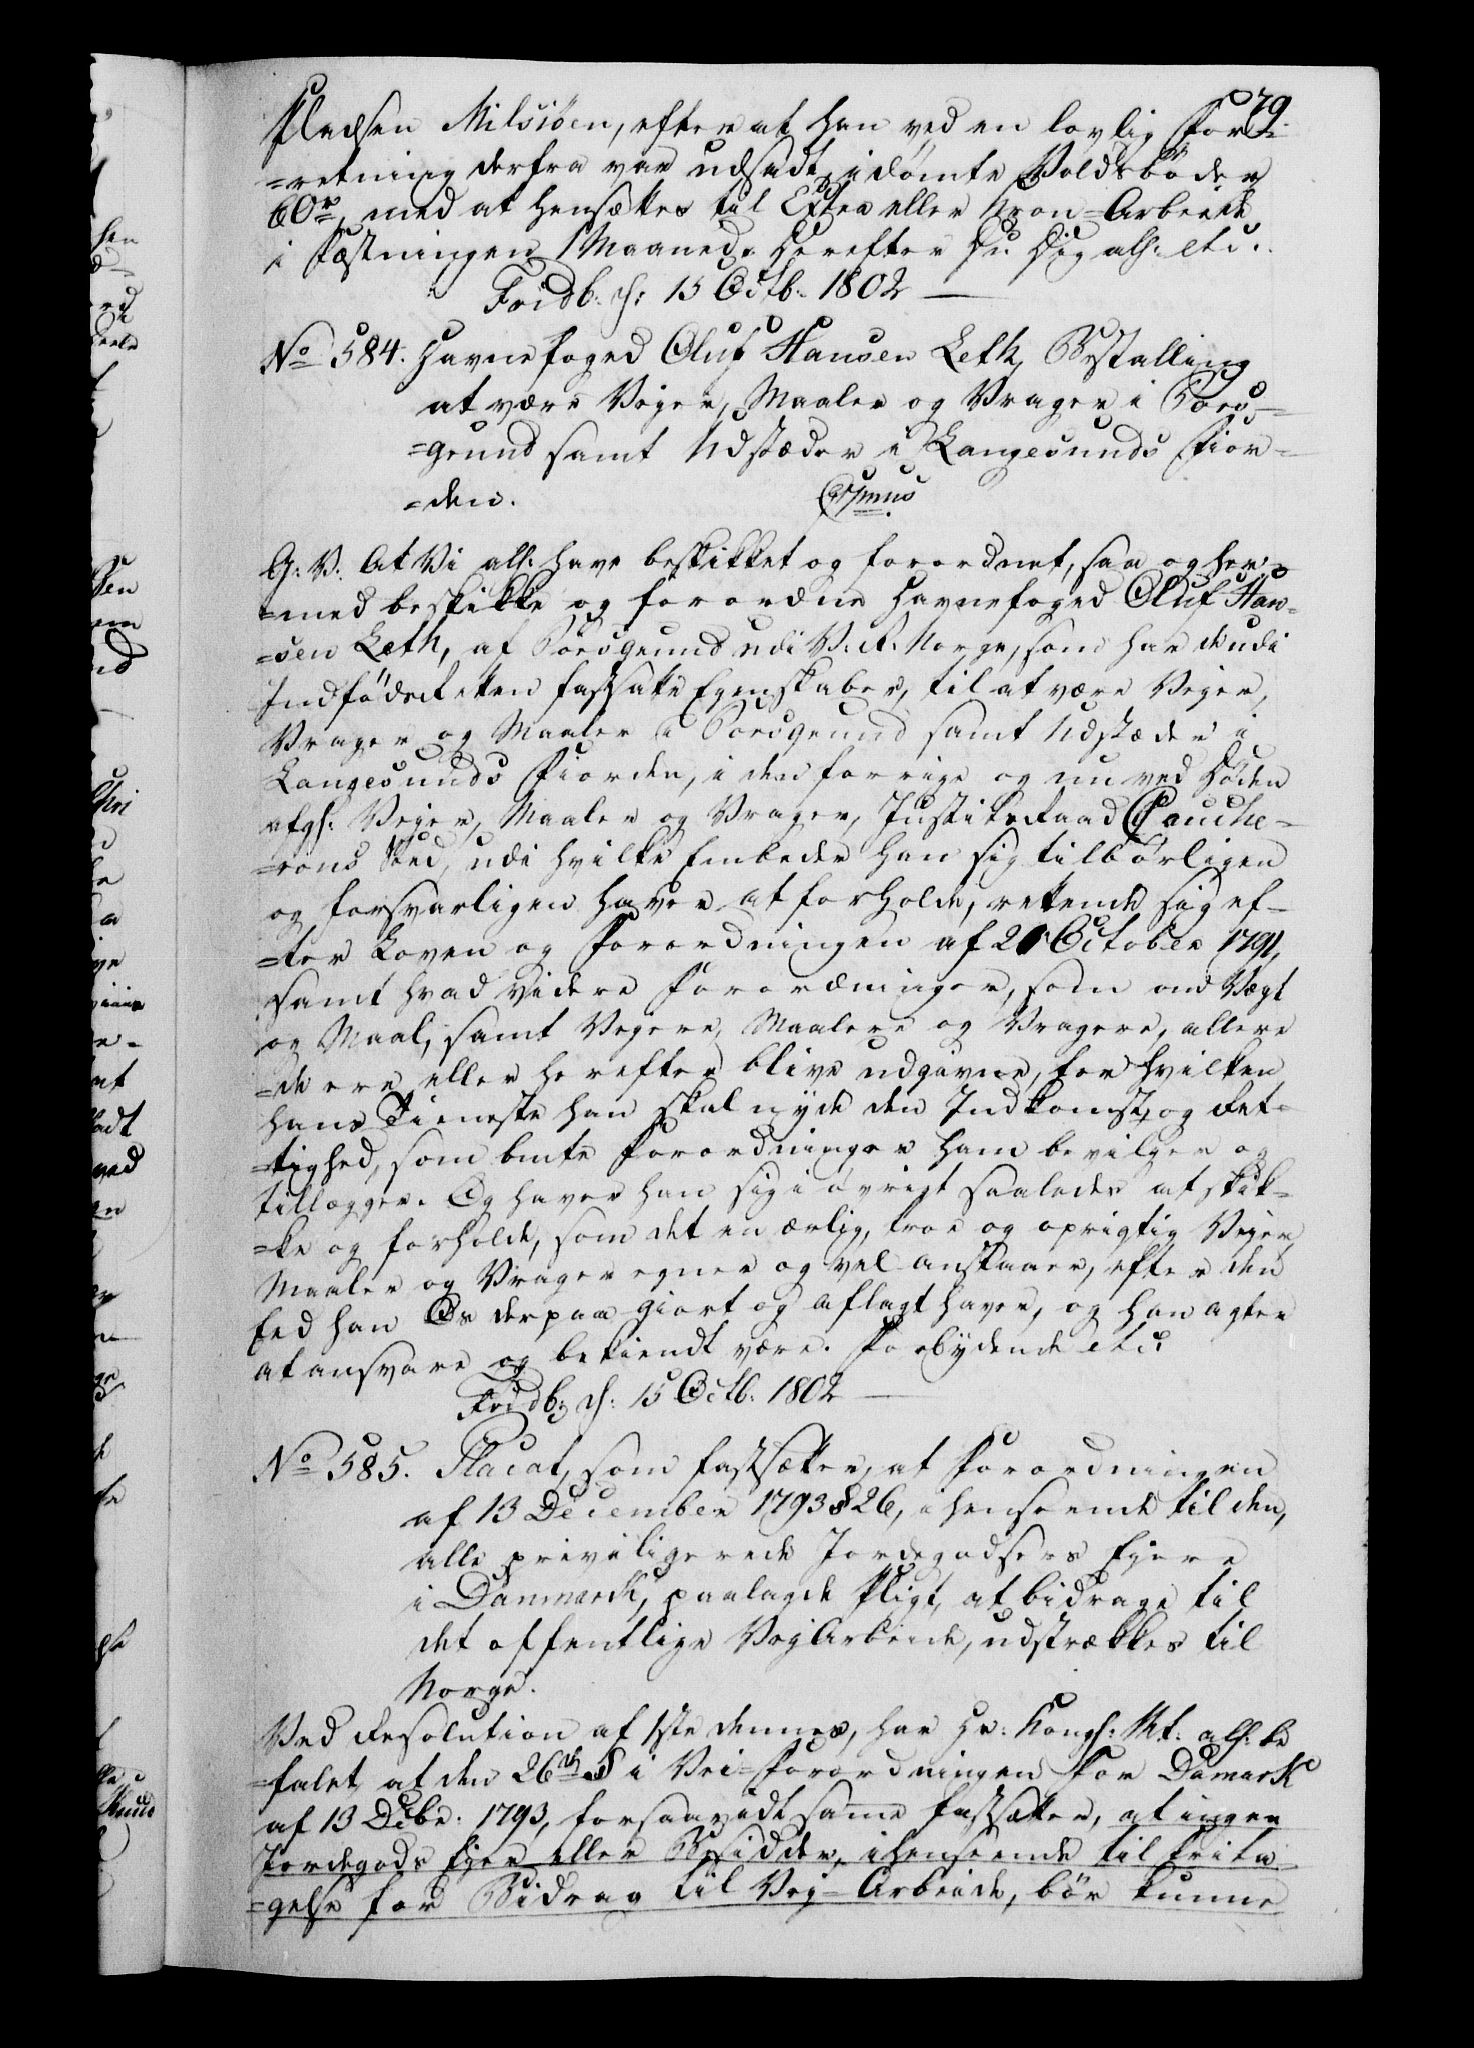 79.
Pladsen Milsiøen, efter at han ved en lovlig For-
=retning derfra var udsadt, idømte Voldsbøder
60 rd, med at hensættes til Extra eller Kron=Arbeide
i Fæstningen 1 Maaned. Herefter Du Dig alh: etc.
Fridb. d: 15 Octb. 1802
No 584. Havnefoged Oluf Hansen Leth, Bestalling
at være Veier, Maaler og Vrager i Pors-
=grund samt Udstæder i Langesunds Fior-
=den.
G: V. At Vi allh: have beskikket og forordnet, saa og her-
=med beskikke og forordne Havnefoged Oluf Han-
=sen Leth, af Porsgrund udi V: R: Norge, som har de udi
Indfødsretten fastsatte Egenskaber, til at være Veier,
Vrager og Maaler i Porsgrund samt Udstæder i
Langesunds Fiorden, i den forrige og nu ved Døden
afg: Veier, Maaler og Vrager, Justitsraad Couche-
=rons Sted, udi hvilke Embeder han sig tilbørligen
og forsvarligen haver at forholde, rettende sig ef-
=ter Loven og Forordningen af 21 October 1791,
samt hvad videre Forordninger, som om Vægt
og Maal, samt Veiere, Maalere og Vragere, allere
=de ere eller herefter blive udgivne, for hvilken
hans Tieneste han skal nyde den Indkomst og Ret-
=tighed, som bmte Forordninger ham bevilger og
tillægger. Og haver han sig i øvrigt saaledes at skik-
=ke og forholde, som det en ærlig, troe og oprigtig Veier,
Maaler og Vrager egner og vel anstaaer, efter den
Eed han Os derpaa giort og aflagt haver, og han agter
at ansvare og bekiendt være. Forbydende etc:
Fridb: d: 15 Octb. 1802
No 585. Placat, som fastsætter, at Forordningen
af 13 December 1793 § 26, i henseende til den,
alle priviligerede Jordegodsers Ejere
i Danmark, paalagde Pligt, at bidrage til
det offentlige VejArbeide, udstrækkes til
Norge.
Ved Resolution af 1ste dennes, har Hs: Kongl: Mt: alh: be
=falet, at den 26de § i Vei=Forordningen for Damark
af 13 Decbr. 1793, forsaavidt same fastsætter, at ingen
Jordegods Ejer eller Besidder, i henseende til Frita
=gelse for Bidrag til Vej=Arbeide, bør kunne